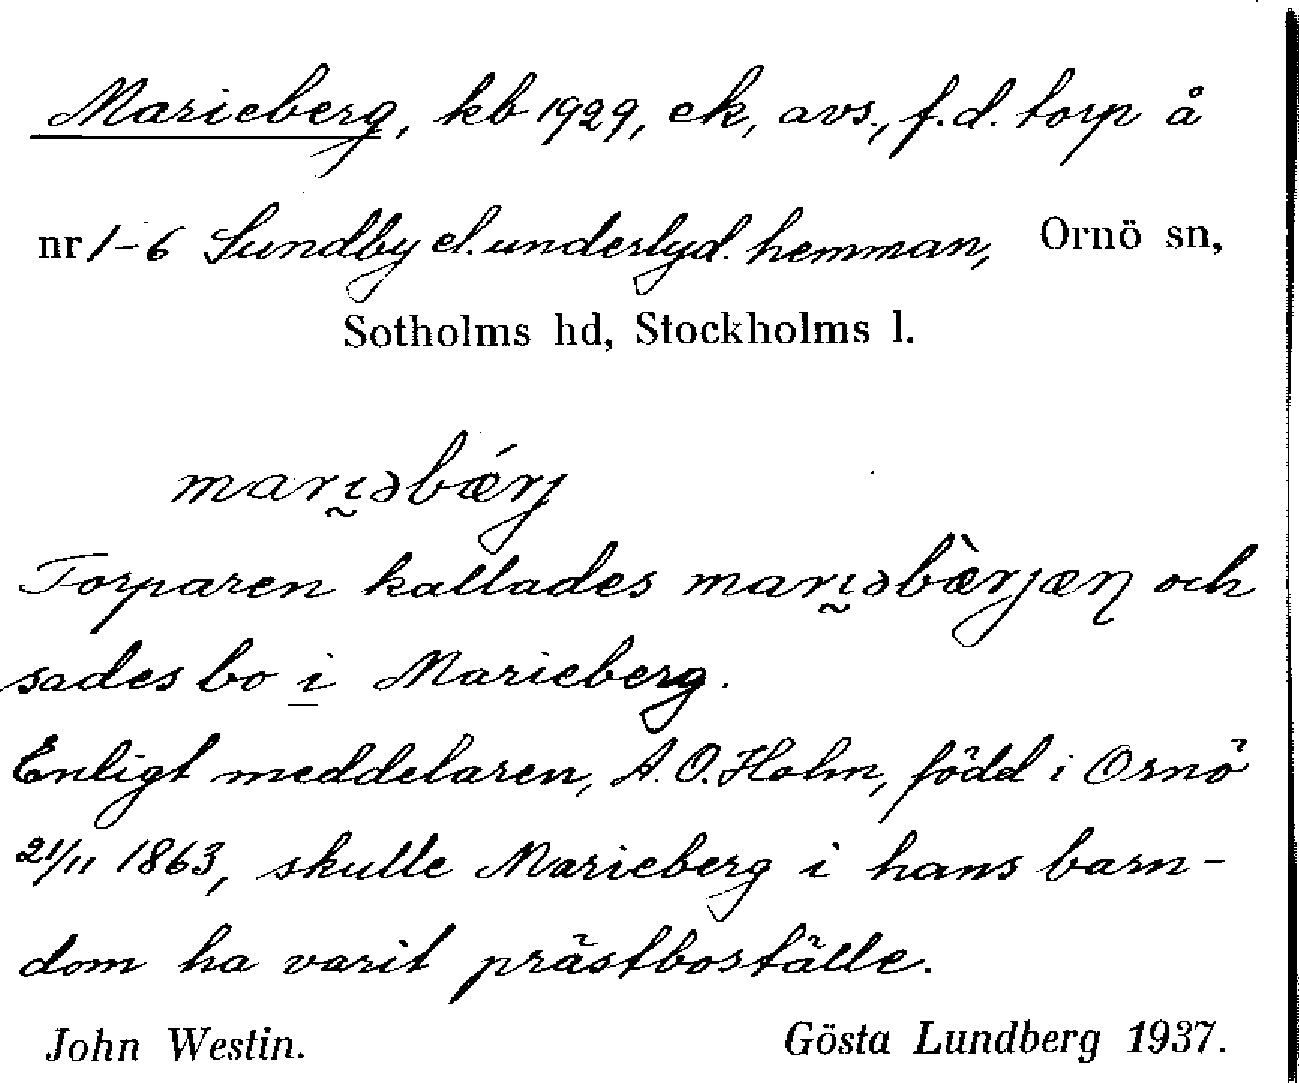 Marieberg, kb 1929, ek, avs., f.d. torp å
nr 1-6 Sundby el. underlyd. hemman, Ornö sn,
Sotholms hd, Stockholms l.
marı̰əbǽrj
Torparen kallades marı̰əbæ̀rjæn och
sades bo i Marieberg.
Enligt meddelaren, A. O. Holm, född i Ornö
21/11 1863, skulle Marieberg i hans barn-
dom ha varit prästboställe.
John Westin. Gösta Lundberg 1937.